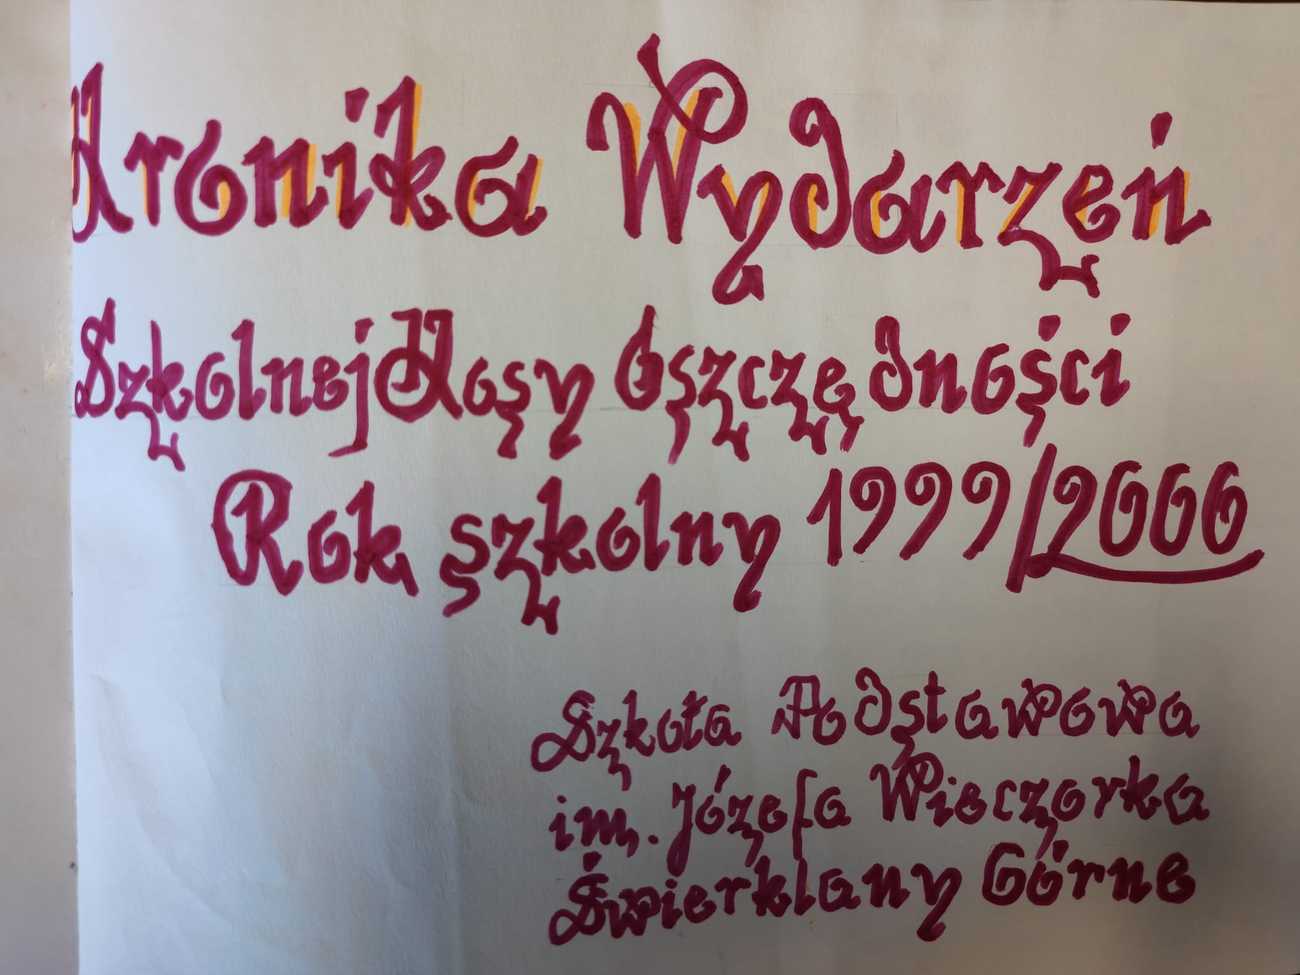 Kronika Wydarzeń
Szkolnej Kasy Oszczędności
Rok szkolny 1999/2000
Szkoła Podstawowa
im. Józefa Wieczorka
Świerklany Górne